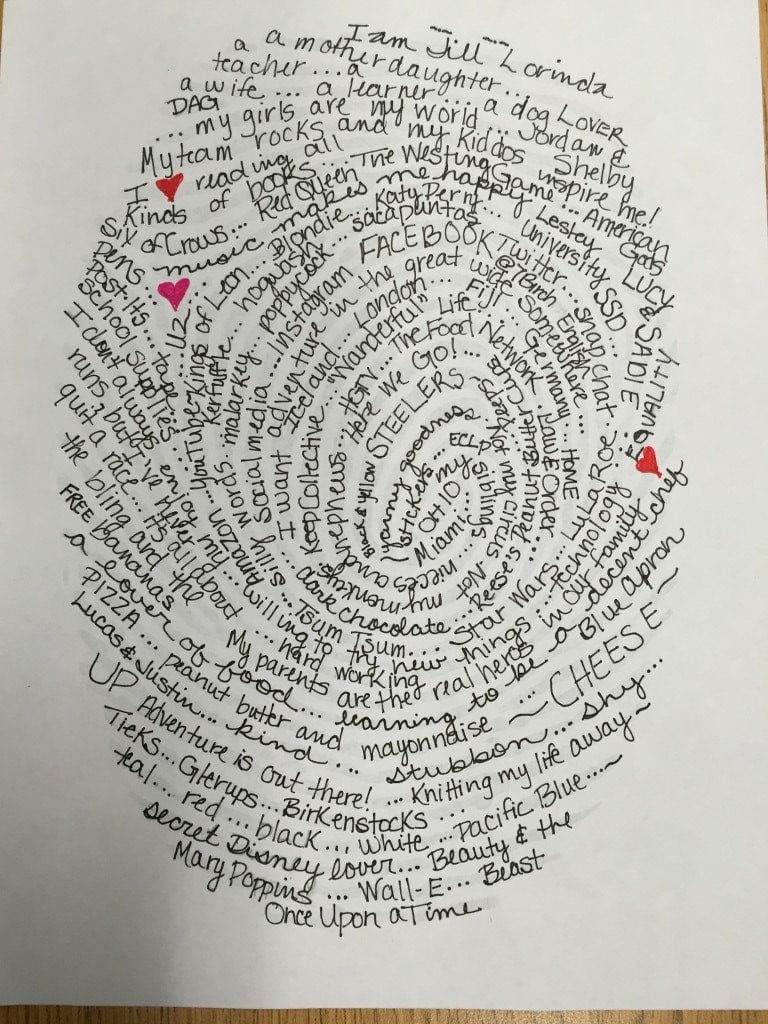 I am Jill Lorinda
a a mother daughter...
teacher... a
a wife... a learner... a dog LOVER
DAG
... my girls are my world... Jordan &
Shelby
My team rocks and my kiddos inspire me!
I ♥ reading all
kinds of books... The Westing Game... American Gods
Six of Crows... Red Queen
music makes me happy... Lesley University
LUCY & SADIE
pens... Post Its... tape...
school supplies...
♥ U2... Kings of Leon... Blondie... Katy Perry...
SSD
hogwash... poppycock... sacapuntas
Kerfuffle... malarkey...
silly words...
YouTube...
social media... Instagram FACEBOOK Twitter... snap chat...
@TBirch
English
EQUALITY ♥
I want adventure in the great wide somewhere
Iceland... London... Fiji... Germany... HOME
"Wanderful" Life!
KeepCollective...
HGTV... The Food Network
Law & Order
Here We Go!...
STEELERS
Black & Yellow
Reese's Peanut Butter Cups
Not my circus Not my monkeys
yummy goodness
stickers... ECLP
my siblings
Oct 10
Miami...
nieces and nephews...
dark chocolate...
I don't always enjoy my
runs, but I've never
quit a race... It's all about
the bling and the
FREE bananas
Amazon...
Tsum Tsum... Star Wars... LuLaRoe
willing to try new things... Technology
... hard working
My parents are the real heros in our family
a lover of food... learning to be a decent chef
PIZZA... peanut butter and mayonnaise ~ Blue Apron
~ CHEESE ~
Lucas & Justin... kind... stubborn... shy...
UP Adventure is out there!... Knitting my life away ~
Ticks... Glerups... Birkenstocks...
teal... red... black... white... Pacific Blue...
secret Disney lover... Beauty & the Beast
Mary Poppins... Wall-E...
Once Upon a Time